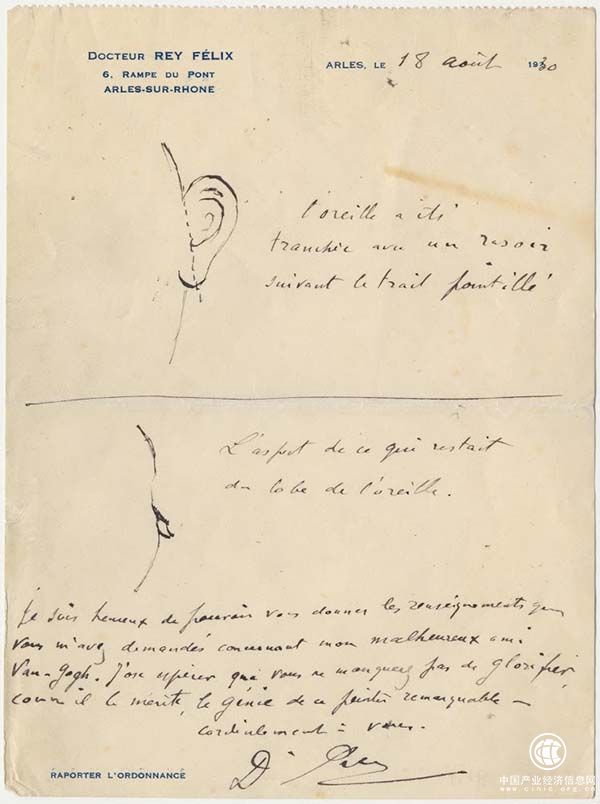 DOCTEUR REY FÉLIX
6, RAMPE DU PONT
ARLES-SUR-RHONE
ARLES, LE 18 août 1930
l'oreille a été
tranchée avec un rasoir
suivant le trait pointillé
L'aspect de ce qui restait
du lobe de l'oreille.
Je suis heureux de pouvoir vous donner les renseignements que
vous m'avez demandés concernant mon malheureux ami
Van-Gogh. J'ose espérer que vous ne manquerez pas de glorifier,
comme il le mérite, le génie de ce peintre remarquable –
cordialement à vous.
Dr Rey
RAPORTER L'ORDONNANCE
中国产业经济信息网
www.cinic.org.cn